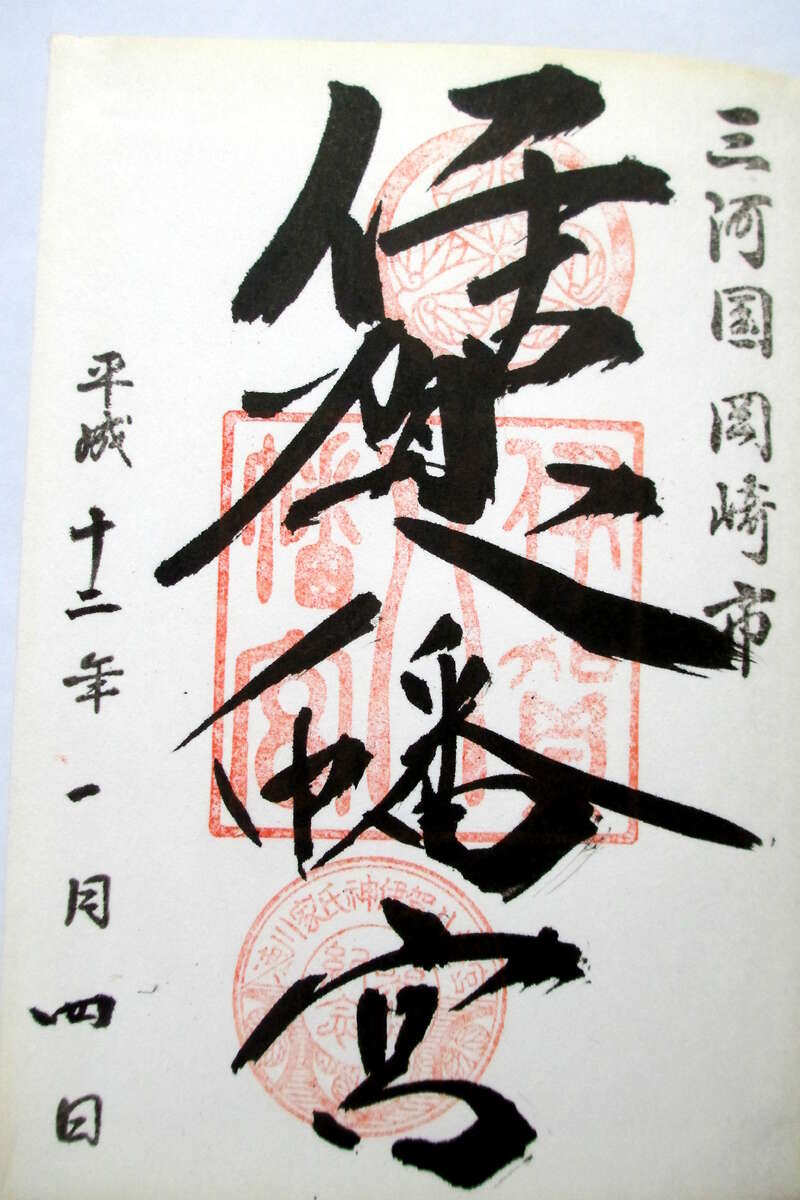 三河国岡崎市
伊賀八幡宮
平成十二年一月四日
伊賀
八
幡宮
徳川家氏神伊賀八幡宮